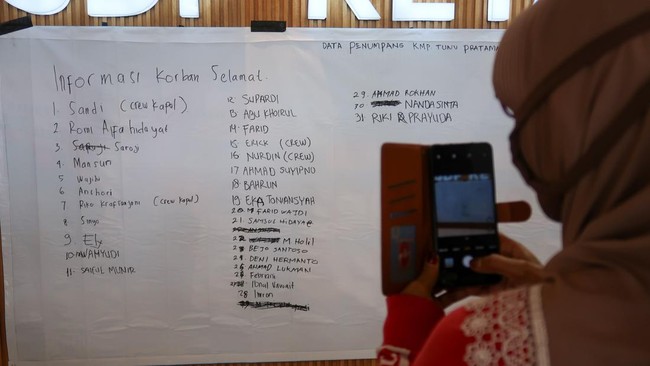 DATA PENUMPANG KMP TUNU PRATAMA
Informasi Korban Selamat.
1. Sandi (crew kapal)
2 Romi Alfa hidayat
3 Saroji
4 Mansun
5 Wajihi
6 Anshori
7. (crew kapal)
8 Singo
9 Eka
10 WAHYUDI
11. SAIFUL MUNIR
12 SUPARDI
13 ABU KHOIRUL
14. FARID
15 ERICK (CREW)
16 NURDIN (CREW)
17 AHMAD SUMPNO
18 BAHRUN
19 EKA TONIANSYAH
20 M FARID WAJDI
21. SAMSUL HIDAYAT
22 M Holil
23 BEJO SANTOSO
24 DENI HERMANTO
25 AHMAD LUKMAN
26 Febriani
27 Ibnul Vawait
28 Imron
29. AHMAD ROKHAN
30 NANDA SINTA
31 RIKI PRAYUDA